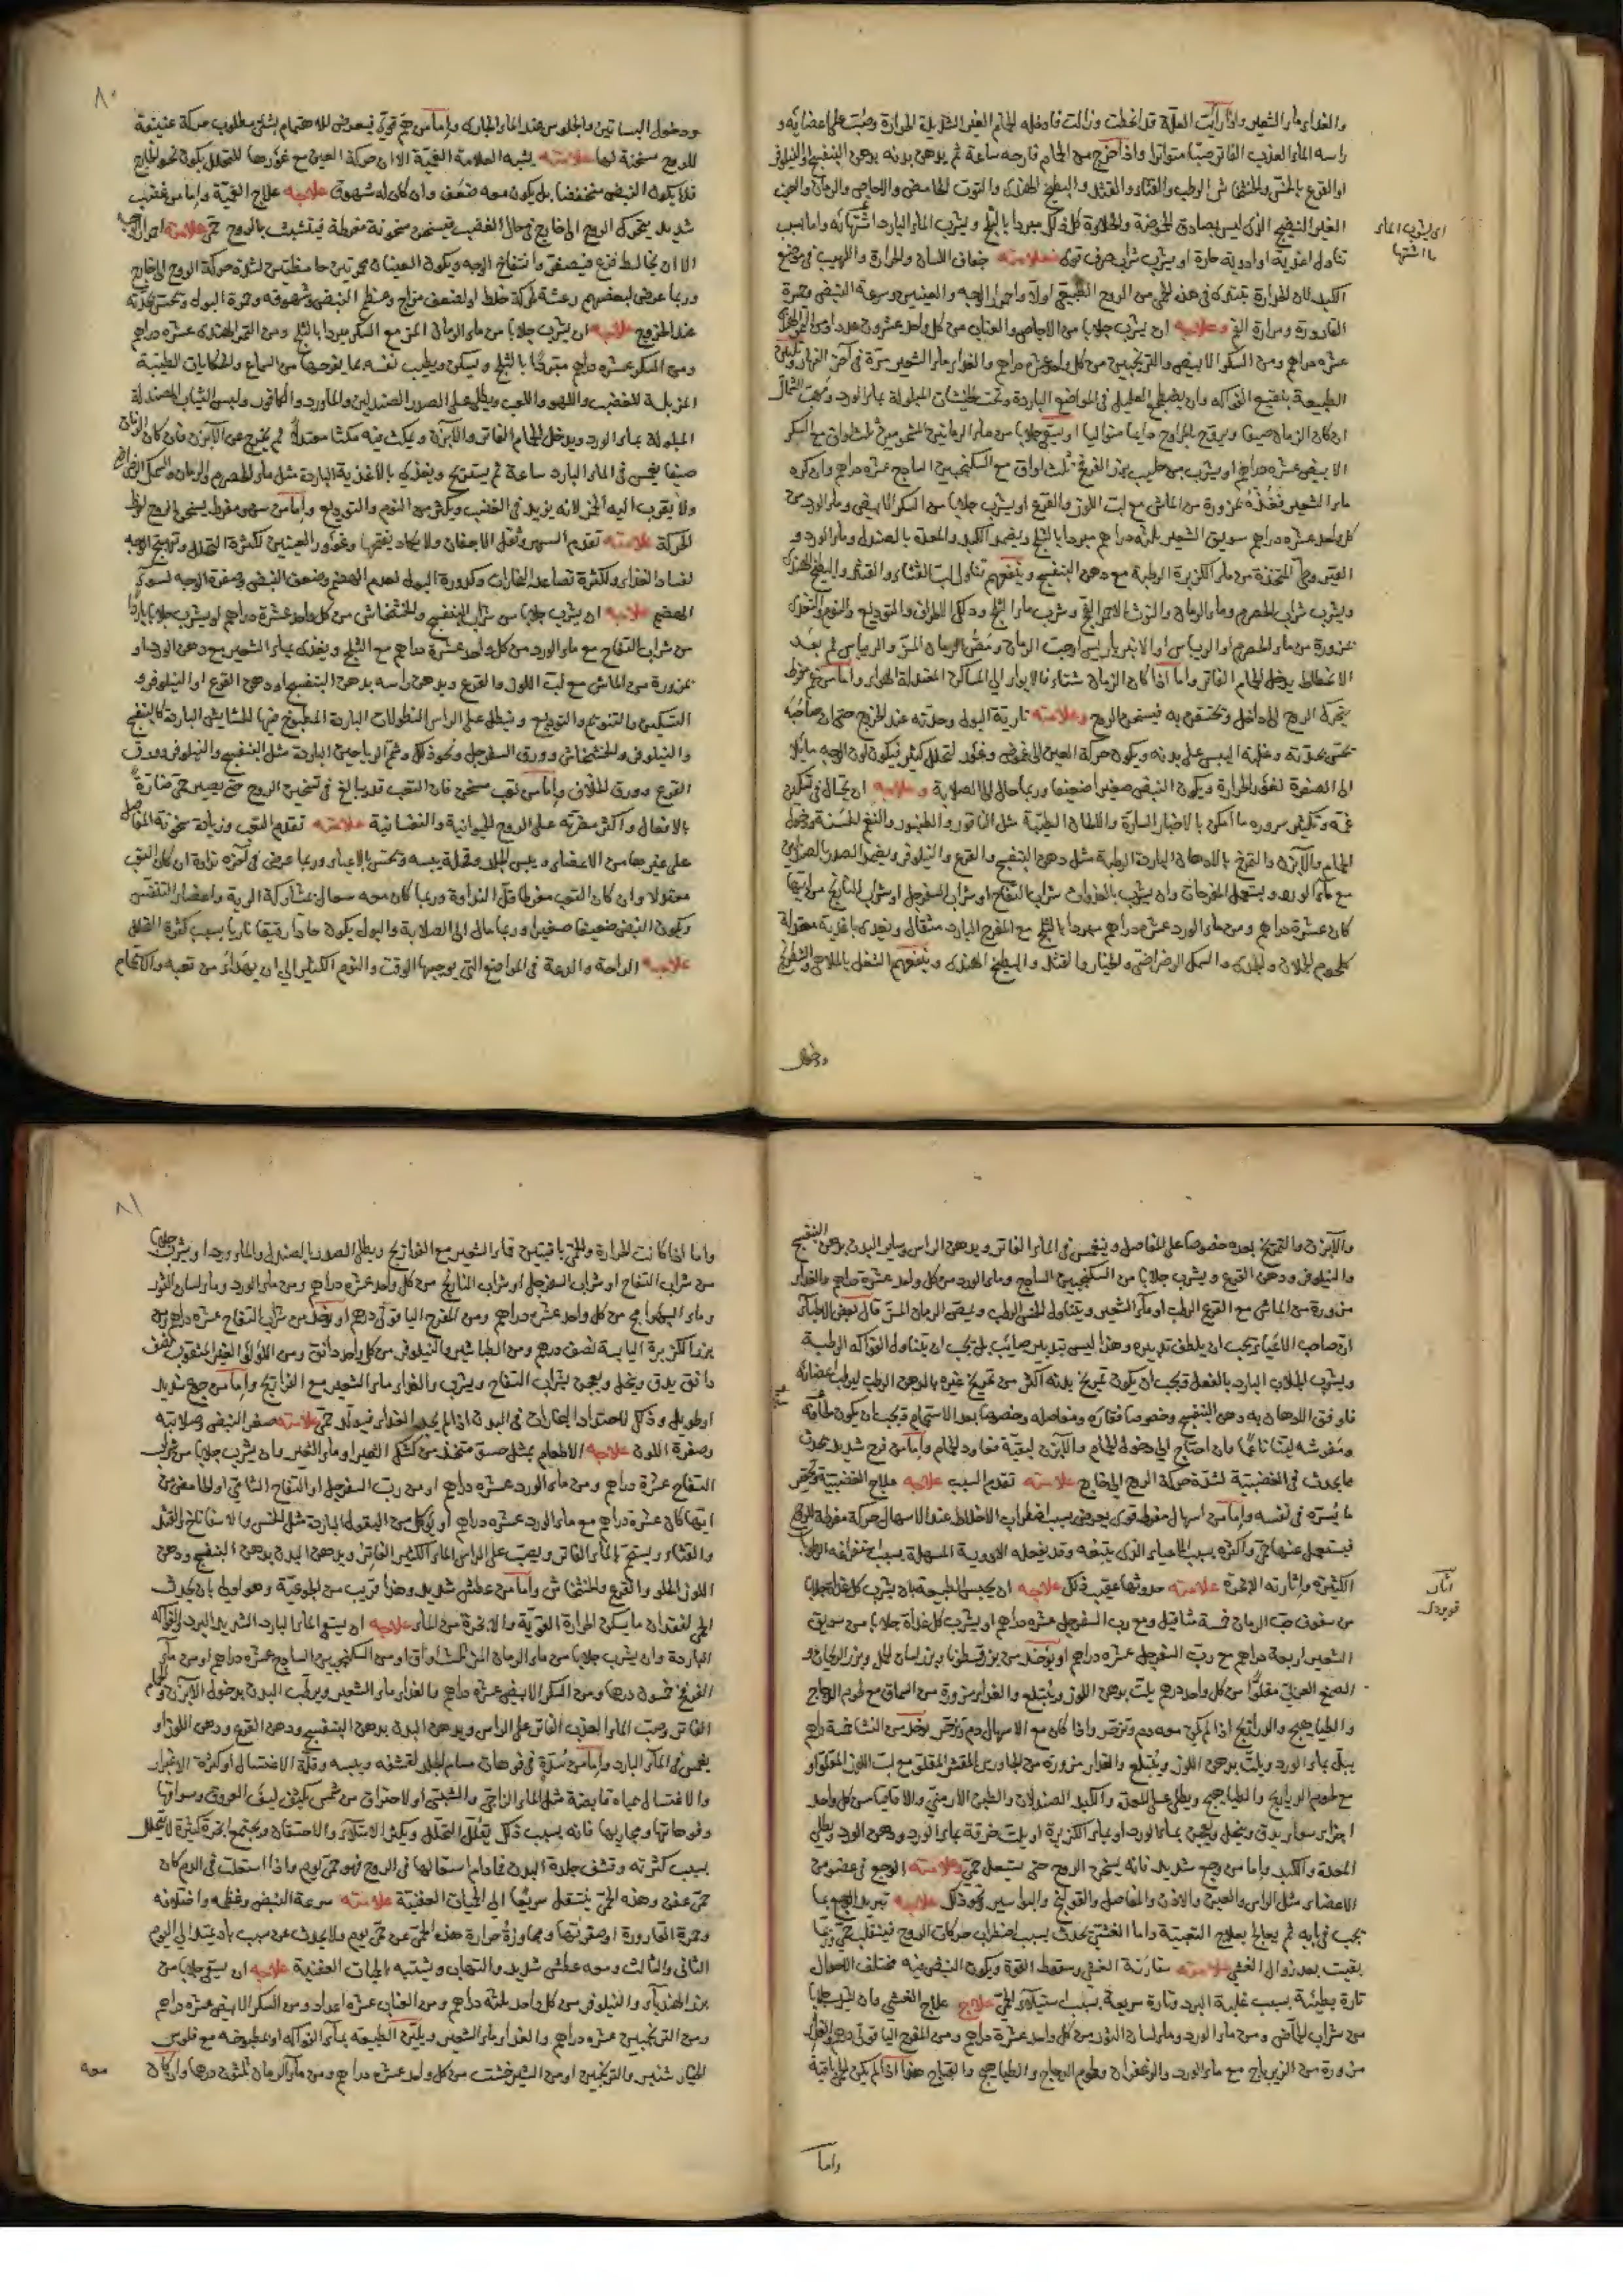 والغذاء ماء الشعير واذا رأيت العلة قد انحطت وزالت فادخله الحمام الغير الشديد الحرارة وصب على اعضائه و
راسه الماء العذب الفاتر صبا متواترا واذا خرج من الحمام فارحه ساعة ثم يدهن بدنه بدهن البنفسج والنيلوفر
او القرع بالخس والخشخاش الرطب والقثاء والقثد والبطيخ الهندى والتوت الحامض والاجاص والرمان والجبن
الغير النضيج الذى ليس بصادق الحموضة والحلاوة كل ذلك مبردا بالثلج ويشرب الماء البارد اشتهائه واما بسبب
تناول اغذية او ادوية حارة او بشرب شراب صرف قوى فعلامته جفاف اللسان والحرارة واللهيب فى موضع
الكبد لان الحرارة تبتدئ فى هذه الحمى من الروح الطبيعى اولا واحمرار الوجه والعينين وسرعة النبض وحمرة
القارورة ومرارة الفم وعلاجه ان يشرب جلابا من الاجاص والعناب من كل واحد عشرون عددا ومن التمر الهندى
عشرة دراهم ومن السكر الابيض والترنجبين من كل واحد عشرة دراهم والغذاء ماء الشعير مرة فى آخر النهار وتليين
الطبيعة بنقيع الفواكه وان يضطجع العليل فى المواضع الباردة وتحت الخيشات المبلولة بماء الورد ومهب الشمال
ان كان الزمان صيفا ويروح بالمراوح دايما متواليا او يسقى جلابا من ماء الرمانين المشحومين ثلث اواق مع السكر
الابيض عشرة دراهم او يشرب من حليب بزر الفرفخ ثلث اواق مع السكنجبين الساذج عشرة دراهم وان كره
ماء الشعير فغذه بمزورة من الماش مع لب اللوز والقرع او يشرب جلابا من السكر الابيض وماء الورد من
كل واحد عشرة دراهم سويق الشعير ثلثة دراهم مبردا بالثلج ويضمد الكبد والمعدة بالصندل وماء الورد و
القيروطى المتخذة من ماء الكزبرة الرطبة مع دهن البنفسج وينفعهم تناول لب القثاء والقثد والبطيخ الهندى
ويشرب شراب الحصرم وماء الرمان والتوت وشرب ماء الثلج ودلك الاطراف والتوديع والنوم والتغذى
بمزورة من ماء الحصرم او الريباس او الانبرباريس او حب الرمان ومص الرمان المز والريباس ثم بعد
الانحطاط يدخل الحمام الفاتر واما اذا كان الزمان شتاء فالايواء الى المساكن المعتدلة الهواء واما من غم مفرط
يتحرك الروح الى داخل وتختنق به فيسخن الروح وعلامته نارية البول وحدته عند الخروج حتى ان صاحبه
يحس بحدته وغلبة اليبس على بدنه ويكون حركة العين الى غموض وغور لتحلل كثير فيكون لون الوجه مائلا
الى الصفرة لغور الحرارة ويكون النبض صغيرا ضعيفا وربما مال الى الصلابة وعلاجه ان يحتال فى تسكين
غمه وتكثير سروره ما امكن بالاخبار السارة والالحان الطيبة مثل الناقور والطنبور والنغم الحسنة ودخول
الحمام والآبزن والتمريخ بالادهان الباردة الرطبة مثل دهن البنفسج والقرع والنيلوفر ويضمد الصدر بالصندلين
مع ماء الورد ويستعمل المفرحات وان يشرب بالغدوات شراب التفاح او شراب السفرجل او شراب النارنج من ايتها
كان عشرة دراهم ومن ماء الورد عشرة دراهم مبردا بالثلج مع المفرح البارد مثقال ويغذى باغذية معتدلة
كلحوم الحملان والجدى والسمك الرضراضى والخيار والقثد والبطيخ الهندى وينفعهم الشغل بالملاهى والشطرنج
اى يشرب الماء
ما اشتها
ودخول
٨٠
ودخول البساتين والجلوس عند الماء الجارى واما من هم قوى فيعرض لله هتمام بشئ مطلوب حركة عنيفة
للروح مسخنة لها علامته يشبه العلامة الغمية الا ان حركة العين مع غؤرها للتحلل يكون نحو الخارج
فلا يكون النبض منخفضا بل يكون معه ضعف وان كان له شهوق علاجه علاج الغمية واما من غضب
شديد يتحرك الروح الى خارج فى حال الغضب فيسخن سخونة مفرطة فيتشبث بالروح حمى علامته احمرار الوجه
الا ان يخالط فزع فيصفر وانتفاخ الوجه ويكون العينان محمرتين جاحظتين لشدة حركة الروح الى خارج
وربما عرض لبعضهم رعشة لحركة خلط او لضعف مزاج وعظم النبض وشهوقه وحمرة البول وتحس بحدته
عند الخروج علاجه ان يشرب جلابا من ماء الرمان المز مع السكر مبردا بالثلج ومن التمر الهندى عشرة دراهم
ومن السكر عشرة دراهم مبردا بالثلج ويسكن ويطيب نفسه بما يفرحها من السماع والحكايات الطيبة
المزيلة للغضب واللهو واللعب ويطلى على الصدر الصندلين والماورد والكافور ولبس الثياب المصندلة
المبلولة بماء الورد ويدخل الحمام الفاتر والآبزن ويمكث فيه مكثا معتدلا ثم يخرج عن الآبزن فان كان الزمان
صيفا يغمس فى الماء البارد ساعة ثم يستريح ويغذى بالاغذية الباردة مثل ماء الحصرم والرمان والسمك الرضراضى
ولا يقرب اليه الخمر لانه يزيد فى الغضب ويكثر من النوم والتوديع واما من سهر مفرط يسخن الروح لفرط
الحركة علامته تقدم السهر وثقل الاجفان ولا يكاد يفتحها وغؤر العينين لكثرة التحلل وتهيج الوجه
لفساد الغذاء ولكثرة تصاعد البخارات وكدورة البول لعدم الهضم وضعف النبض وصفرة الوجه لسوء
الهضم علاجه ان يشرب جلابا من شراب البنفسج والخشخاش من كل واحد عشرة دراهم او يشرب جلابا باردا
من شراب التفاح مع ماء الورد من كل واحد عشرة دراهم مع الثلج ويغذى بماء الشعير مع دهن الورد او
بمزورة من الماش مع لب اللوز والقرع ويدهن راسه بدهن البنفسج او دهن القرع او النيلوفر و
التسكين والتنويم والتوديع وينطل على الراس النطولات الباردة المطبوخ فيها الحشايش الباردة كالبنفسج
والنيلوفر والخشخاش وورق السفرجل ونحو ذلك وشم الرياحين الباردة مثل البنفسج والنيلوفر وورق
القرع وورق الخلاف واما من تعب مسخن فان التعب قد يبالغ فى تسخين الروح حتى يصير حمى ضارة
بالافعال واكثر مضرته على الروح الحيوانية والنفسانية علامته تقدم التعب وزيادة سخونة المفاصل
على غيرها من الاعضاء ويبس الجلد وقحلة يبسه ويحس بالاعياء وربما عرض فى آخره نداوة ان كان التعب
معتدلا وان كان التعب مفرطا قل النداوة وربما كان معه سعال لمشاركة الرية واعضاء التنفس
ويكون النبض ضعيفا صغيرا وربما مال الى الصلابة والبول يكون حادا رقيقا ناريا بسبب كثرة التحلل
علاجه الراحة والدعة فى المواضع التى يوجبها الوقت والنوم الكثير الى ان يهدأ من تعبه والاستحمام
والآبزن والتمريخ بعده خصوصا على المفاصل وينغمس فى الماء الفاتر ويدهن الراس وساير البدن بدهن البنفسج
والنيلوفر ودهن القرع ويشرب جلابا من السكنجبين الساذج وماء الورد من كل واحد عشرة دراهم والغذاء
مزورة من الماش مع القرع الرطب او ماء الشعير ويتناول الخس الرطب ويمص الرمان المز قال بعض الاطباء
ان صاحب الاعياء يجب ان يلطف تدبيره وهذا ليس بتدبير صائب بل يجب ان يتناول الفواكه الرطبة
ويشرب الجلاب البارد بالفعل ويجب ان يكون تمريخ بدنه اكثر من تمريخ غيره بالدهن الرطب ليرطب اعضائه
فاوفق الادهان به دهن البنفسج وخصوصا فقاره ومفاصله وخصوصا بعد الاستحمام ويجب ان يكون طعامه
ومفرشه لينا ناعما وان احتاج الى دخول الحمام والآبزن لبقية تعاود الحمام واما من فرح شديد يحدث
ما يحدث فى الغضبية لشدة حركة الروح الى خارج علامته تقدم السبب علاجه علاج الغضبية
ما يسره فى نفسه واما من اسهال مفرط قوى يعرض بسبب اضطراب الاخلاط عند الاسهال حركة مفرطة للروح
فيشتعل عنها حمى واكثره بسبب الاعياء الذى يتبعه وقد يفعله الادوية المسهلة بسبب
الكثيرة واثارته الابخرة علامته حدوثها عقيب ذلك علاجه ان يحبس الطبيعة بان يشرب كل غداة جلابا
من سفوف حب الرمان خمسة مثاقيل ومع رب السفرجل عشرة دراهم او يشرب كل غداة جلابا من سويق
الشعير اربعة دراهم مع رب السفرجل عشرة دراهم او يوخذ من بزر قطونا وبزر لسان الحمل وبزر الريحان و
الصمغ العربى مقلوا من كل واحد درهم يلت بدهن اللوز ويبتلع والغذاء مزورة من السماق مع لحوم الدجاج
والطياهيج والدراريج اذا لم يكن معه دم وزحير واذا كان مع الاسهال دم وزحير يوخذ من النشا خمسة دراهم
يبل بماء الورد ويلت بدهن اللوز ويبتلع والغذاء مزورة من الجاورس المقشر المقلو مع لب اللوز المقلو او
مع لحوم الدراريج والطياهيج ويطلى على المعدة والكبد الصندلان والطين الارمنى والاقاقيا من كل واحد
اجزاء سواء يدق وينخل ويعجن بماء الورد او بماء الكزبرة او يلت خرقة بماء الورد ودهن الورد ويطلى
المعدة والكبد واما من وجع شديد فانه يسخن الروح حتى يشتعل حمى وعلامته الوجع فى عضو من
الاعضاء مثل الراس والعين والاذن والمفاصل والقولنج والبواسير ونحو ذلك علاجه تبريد الوجع بما
يجب فى بابه ثم يعالج بعلاج التعبية واما الغشى يحدث بسبب اضطراب حركات الروح فينقلب حمى وربما
بقيت بعد زوال الغشى علامته مقارنة الغشى وسقوط القوة ويكون النبض فيه مختلف الاحوال
تارة بطيئة بسبب غلبة البرد وتارة سريعة بسبب استيلاء الحمى علاج علاج الغشى بان يشرب جلابا
من شراب الحماض ومن ماء الورد وماء لسان الثور من كل واحد عشرة دراهم ومن المفرح الياقوتى درهم والغذاء
مزورة من الزيرباج مع ماء الورد والزعفران ولحوم الدجاج والطياهيج والقباج هذا اذا لم يكن الحمى باقية
واما
٨١
واما اذا كانت الحرارة والحمى باقيتين فماء الشعير مع الفراريج ويطلى الصدر بالصندل والماء ورد او يشرب جلابا
من شراب التفاح او شراب السفرجل او شراب النارنج من كل واحد عشرة دراهم ومن ماء الورد وماء لسان الثور
وماء من كل واحد عشرة دراهم ومن المفرح الياقوتى درهم او يوخذ من شراب التفاح عشرة دراهم ومن
بزر الكزبرة اليابسة نصف درهم ومن الطباشير والنيلوفر من كل واحد دانق ومن اللؤلؤ الغير المثقوب نصف
دانق يدق وينخل ويعجن بشراب التفاح ويشرب والغذاء ماء الشعير مع الفراريج واما من جوع شديد
او طويل وذلك لاحتداد البخارات فى البدن اذا لم يجد الغذاء فيولد حمى علامته صغر النبض وصلابته
وصفرة اللون علاجه الاطعام بمثل حسو متخذ من كشك الشعير او ماء الشعير وان يشرب جلابا من شراب
التفاح عشرة دراهم ومن ماء الورد عشرة دراهم او من رب السفرجل او التفاح الشامى او الحامض من
ايتها كان عشرة دراهم مع ماء الورد عشرة دراهم او يوكل من البقول الباردة مثل الخس والاسفاناخ والقثد
والقثاء ويستحم بالماء الفاتر ويصب على الراس الماء الكثير الفاتر ويدهن البدن بدهن البنفسج ودهن
اللوز الحلو والقرع والخشخاش واما من عطش شديد وهذا قريب من الجوعية وهو اولى بان يحدث
الحمى لفقدان ما يسكن الحرارة القوية والابخرة من الماء علاجه ان يسقى الماء البارد الشديد البرد والفواكه
الباردة وان يشرب جلابا من ماء الرمان المز ثلث اواق او من السكنجبين الساذج عشرة دراهم او من ماء
الفرفخ خمسون درهما ومن السكر الابيض عشرة دراهم والغذاء ماء الشعير ويرطب البدن بدخول الآبزن والحمام
الفاتر وصب الماء العذب الفاتر على الراس ويدهن البدن بدهن البنفسج ودهن القرع ودهن اللوز او
يغمس فى الماء البارد واما من سدة فى فوهات مسام الجلد لقشفه ويبسه وقلة الاغتسال او كثرة الاغبرار
والاغتسال بمياه قابضة مثل الماء الزاجى والشبى او لاحتراق من شمس يكثف ليف العروق وسواقيها
وفوهاتها ومجاريها فانه بسبب ذلك يقل التحلل ويكثر الامتلاء والاحتقان ويجتمع ابخرة كثيرة لا يتحلل
بسبب كثرته وتشف جلدة البدن فما دام اشتعالها فى الروح فهو حمى يوم واذا اشتعلت فى الدم كان
حمى عفن وهذه الحمى ينتقل سريعا الى الحميات العفنية علامته سرعة النبض وغلظه واختلافه
وحمرة القارورة او صفرتها ومجاوزة حرارة هذه الحمى عن حمى يوم ولا يحدث عن سبب باد يمتد الى اليوم
الثانى والثالث ومعه عطش شديد والتهاب ويشتبه بالحميات العفنية علاجه ان يسقى جلابا من
بزر الهندباء والنيلوفر من كل واحد ثلثة دراهم ومن العناب عشرة اعداد ومن السكر الابيض عشرة دراهم
ومن الترنجبين عشرة دراهم والغذاء ماء الشعير ويلين الطبيعة بماء الفواكه او بمطبوخه مع فلوس
الخيار شنبر والترنجبين او من الشيرخشت من كل واحد عشرة دراهم ومن ماء الرمان ثلثون درهما وان كان
معه